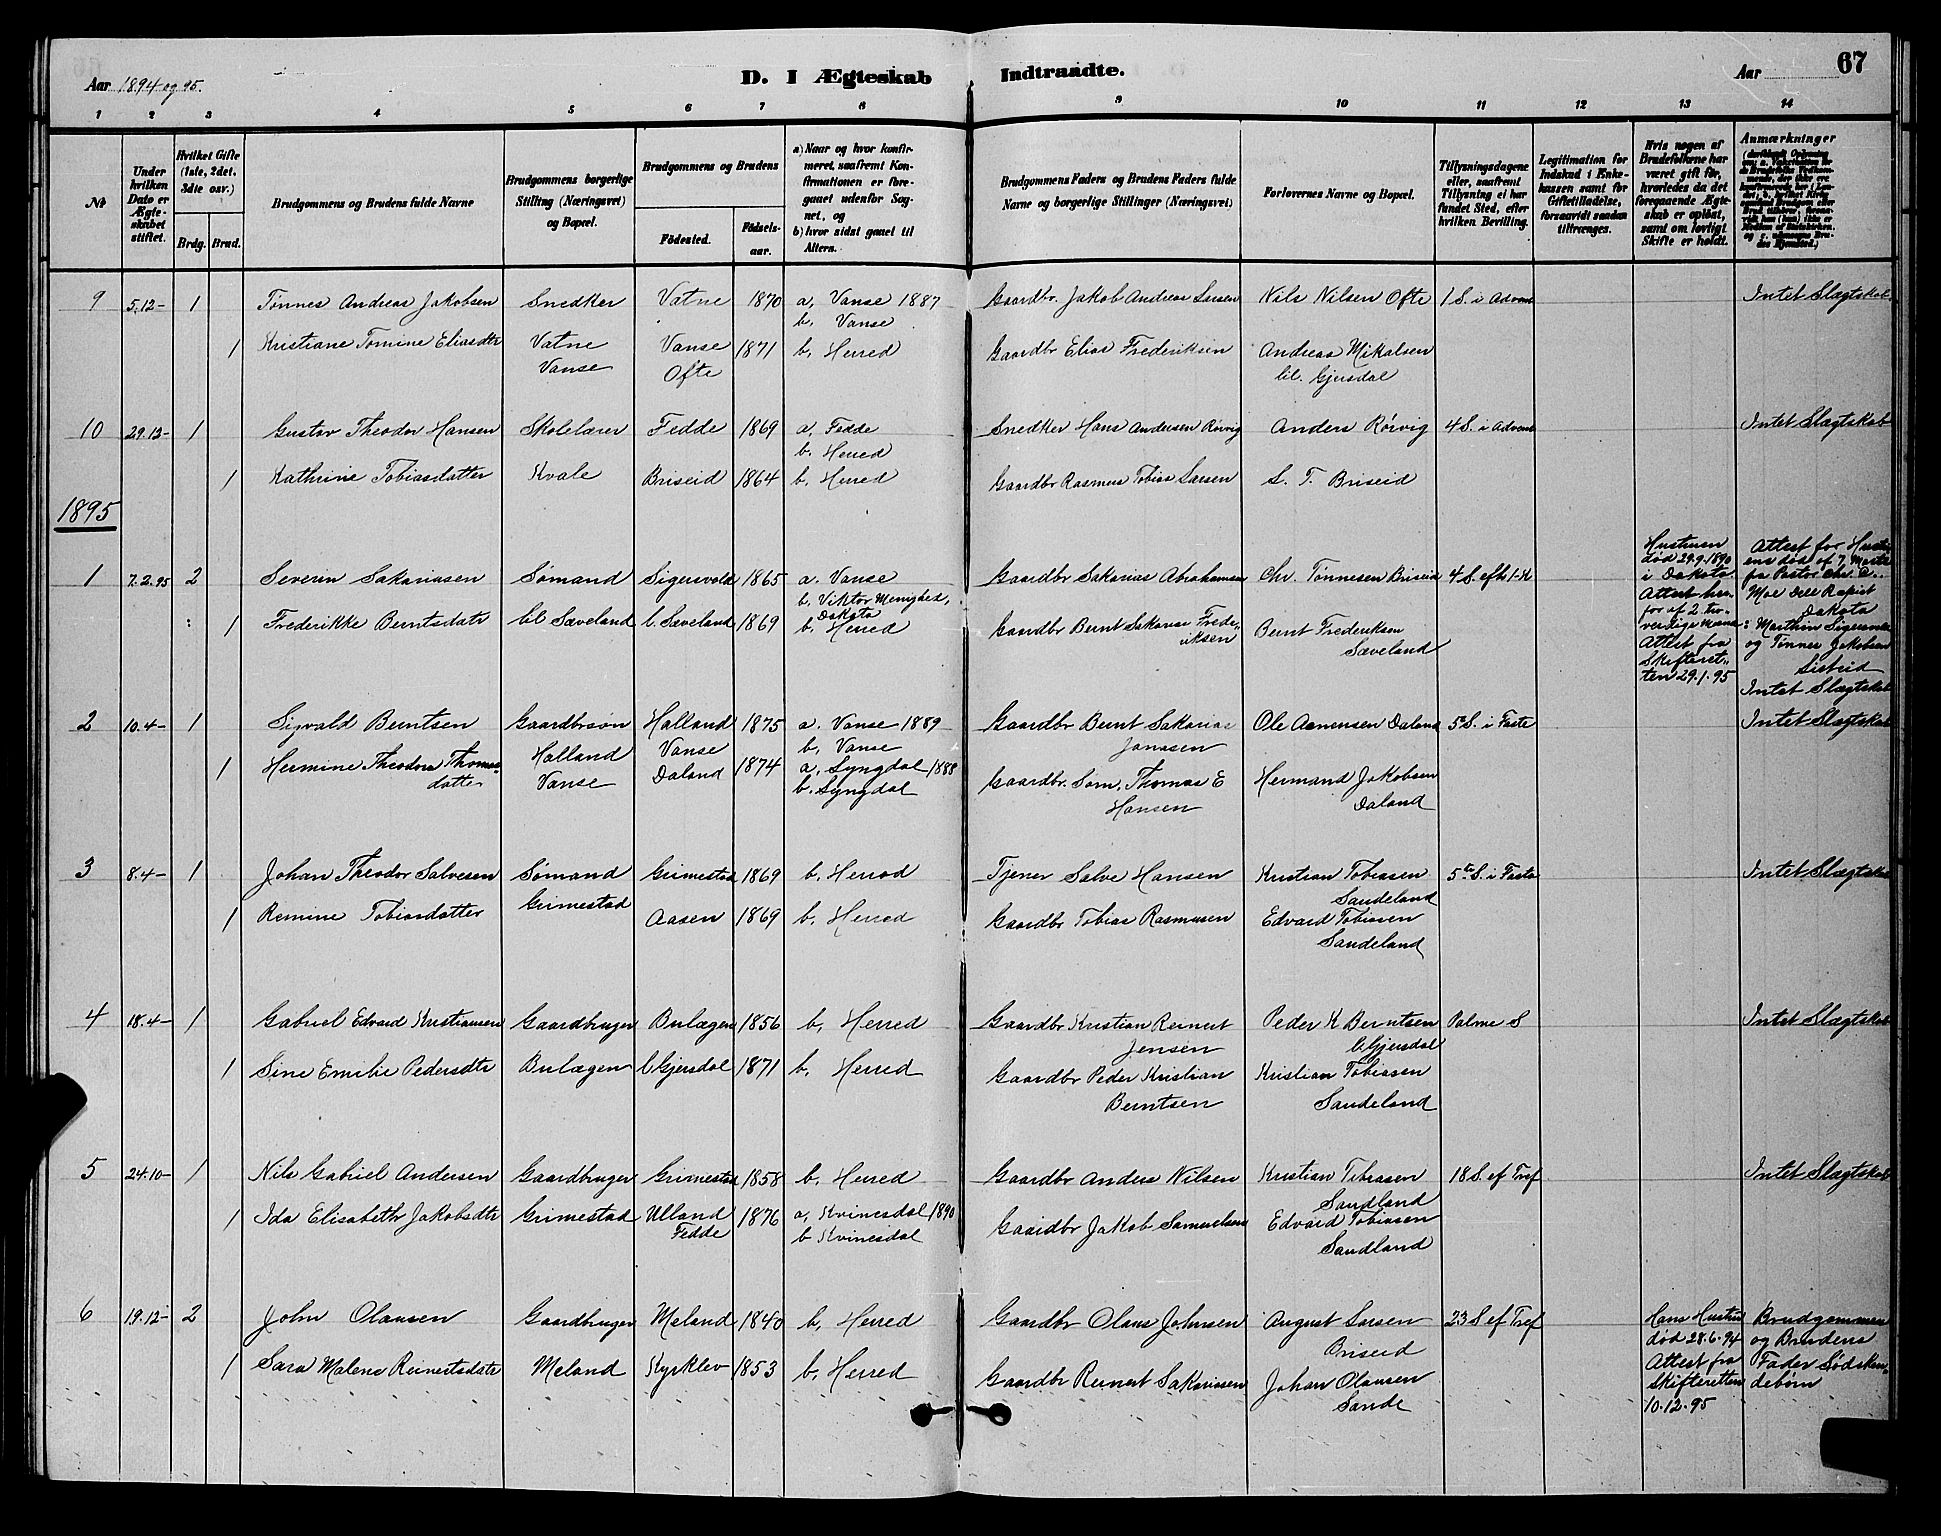 67
Aar 1894 og 95.
D. I Ægteskab Indtraadte.
Aar
1 2 3 4 5 6 7 8 9 10 11 12 13 14
No
Under hvilken Dato er Ægteskabet stiftet.
Hvilket Gifte (1ste, 2det, 3die osv.)
Brdg. Brud.
Brudgommens og Brudens fulde Navne
Brudgommens borgerlige Stilling (Næringsvei) og Bopæl.
Brudgommens og Brudens
Födested. Födsels-aar.
a) Naar og hvor konfirmeret, saafremt Konfirmationen er foregaaet udenfor Sognet, og
b) hvor sidst gaaet til Altern.
Brudgommens Faders og Brudens Faders fulde Navne og borgerlige Stillinger (Næringsvei)
Forlovernes Navne og Bopæl.
Tillysningsdagene eller, saafremt Tillysning ei har fundet Sted, efter hvilken Bevilling.
Legitimation for Indskud i Enkekassen samt for Giftetilladelse, forsaavidt saadan tiltrænges.
Hvis nogen af Brudefolkene har været gift før, hvorledes da det foregaaende Ægteskab er opløst, samt om lovligt Skifte er holdt.
Anmærkninger
9 5.12- 1 Tønnes Andreas Jakobsen Snedker Vatne 1870 a, Vanse 1887 Gaardbr. Jakob Andreas Larsen Nils Nilsen Ofte 1 S. i Advent Intet Slægtskab
b. Vanse
1 Kristiane Tomine Eliasdtr Vatne Vanse 1871 b, Herred Gaardbr Elias Frederiksen Andreas Mikalsen
Vanse Ofte lil. Gjersdal
10 29.12- 1 Gustav Theodor Hansen Skolelærer Fedde 1869 a, Fedde Snedker Hans Andersen Rörvig Anders Rörvig 4 S. i Advent Intet Slægtskab
b. Herred
1 Kathrine Tobiasdatter Kvale Briseid 1864 b, Herred Gaardbr Rasmus Tobias Larsen S. T. Briseid
1895
1 7.2.95 2 Severin Sakariasen Sømand Sigersvold 1865 a. Vanse Gaardbr Sakarias Abrahamsen Chr. Tønnesen Briseid 4 S. eft
b, Viktor Menighed, Dakota
1 Frederikke Berntsdatr lil Sæveland l. Sæveland 1869 b. Herred Gaardbr Bernt Sakarias Frederiksen Bernt Frederiksen
Sæveland
Hustruen
død 29.9.1890
i Dakota
Attest
for af 2
Attest fra
Skifteret-
ten 29.1.95
Attest for
ens død af
fra Pastor Chr.
Moe Dell Rapid
Dakota
og Tønnes Jakobsen
Intet Slægtskab
2 10.4- 1 Sigvald Berntsen Gaardbrsøn Halland 1875 a. Vanse 1889 Gaardbr Bernt Sakarias Ole Asmensen Daland 5te S. i Faste Intet Slægtskab
Vanse b, Vanse Jonasen
1 Hermine Theodora Thomas- Halland Daland 1874 a, Lyngdal 1888 Gaardbr. Søm, Thomas E Hermand Jakobsen
datter Vanse b. Lyngdal Hansen Daland
3 8.4- 1 Johan Theodor Salvesen Sømand Grimestad 1869 b. Herred Tjener Salve Hansen Kristian Tobiasen 5te S. i Faste Intet Slægtskab
Grimestad Sandeland
1 Remine Tobiasdatter Aasen 1869 b, Herred Gaardbr Tobias Rasmusen Edvard Tobiasen
Sandeland
4 18.4- 1 Gabriel Edvard Kristiansen Gaardbruger Bulægen 1856 b, Herred Gaardbr Kristian Reinert Peder K Berntsen Palme S Intet Slægtskab
Jensen l. Gjersdal
1 Sine Emilie Pedersdtr Bulægen l. Gjersdal 1871 b. Herred Gaardbr Peder Kristian Kristian Tobiasen
Berntsen Sandeland
5 24.10- 1 Nils Gabriel Andersen Gaardbruger Grimestad 1858 b, Herred Gaardbr Anders Nilsen Kristian Tobiasen 18 S. ef Tref Intet Slægtskab
Sandland
1 Ida Elisabeth Jakobsdtr Grimestad Ulland 1876 a, Kvinesdal 1890 Gaardbr Jakob Samuelsen Edvard Tobiasen
Fedde b Kvinesdal Sandland
6 19.12- 2 John Olausen Gaardbruger Meland 1840 b, Herred Gaardbr Olaus Johnsen August Larsen 23 S ef Tref
Briseid
1 Sara Malene Reinertsdatr Meland Kyrklev 1853 b, Herred Gaardbr Reinert Sakariasen Johan Olausen
Sande
Hans Hustru
død 28.6.94
Attest fra
Skifteretten
10.12.95
Brudgommen
og Brudens
Fader Sødsken-
debørn